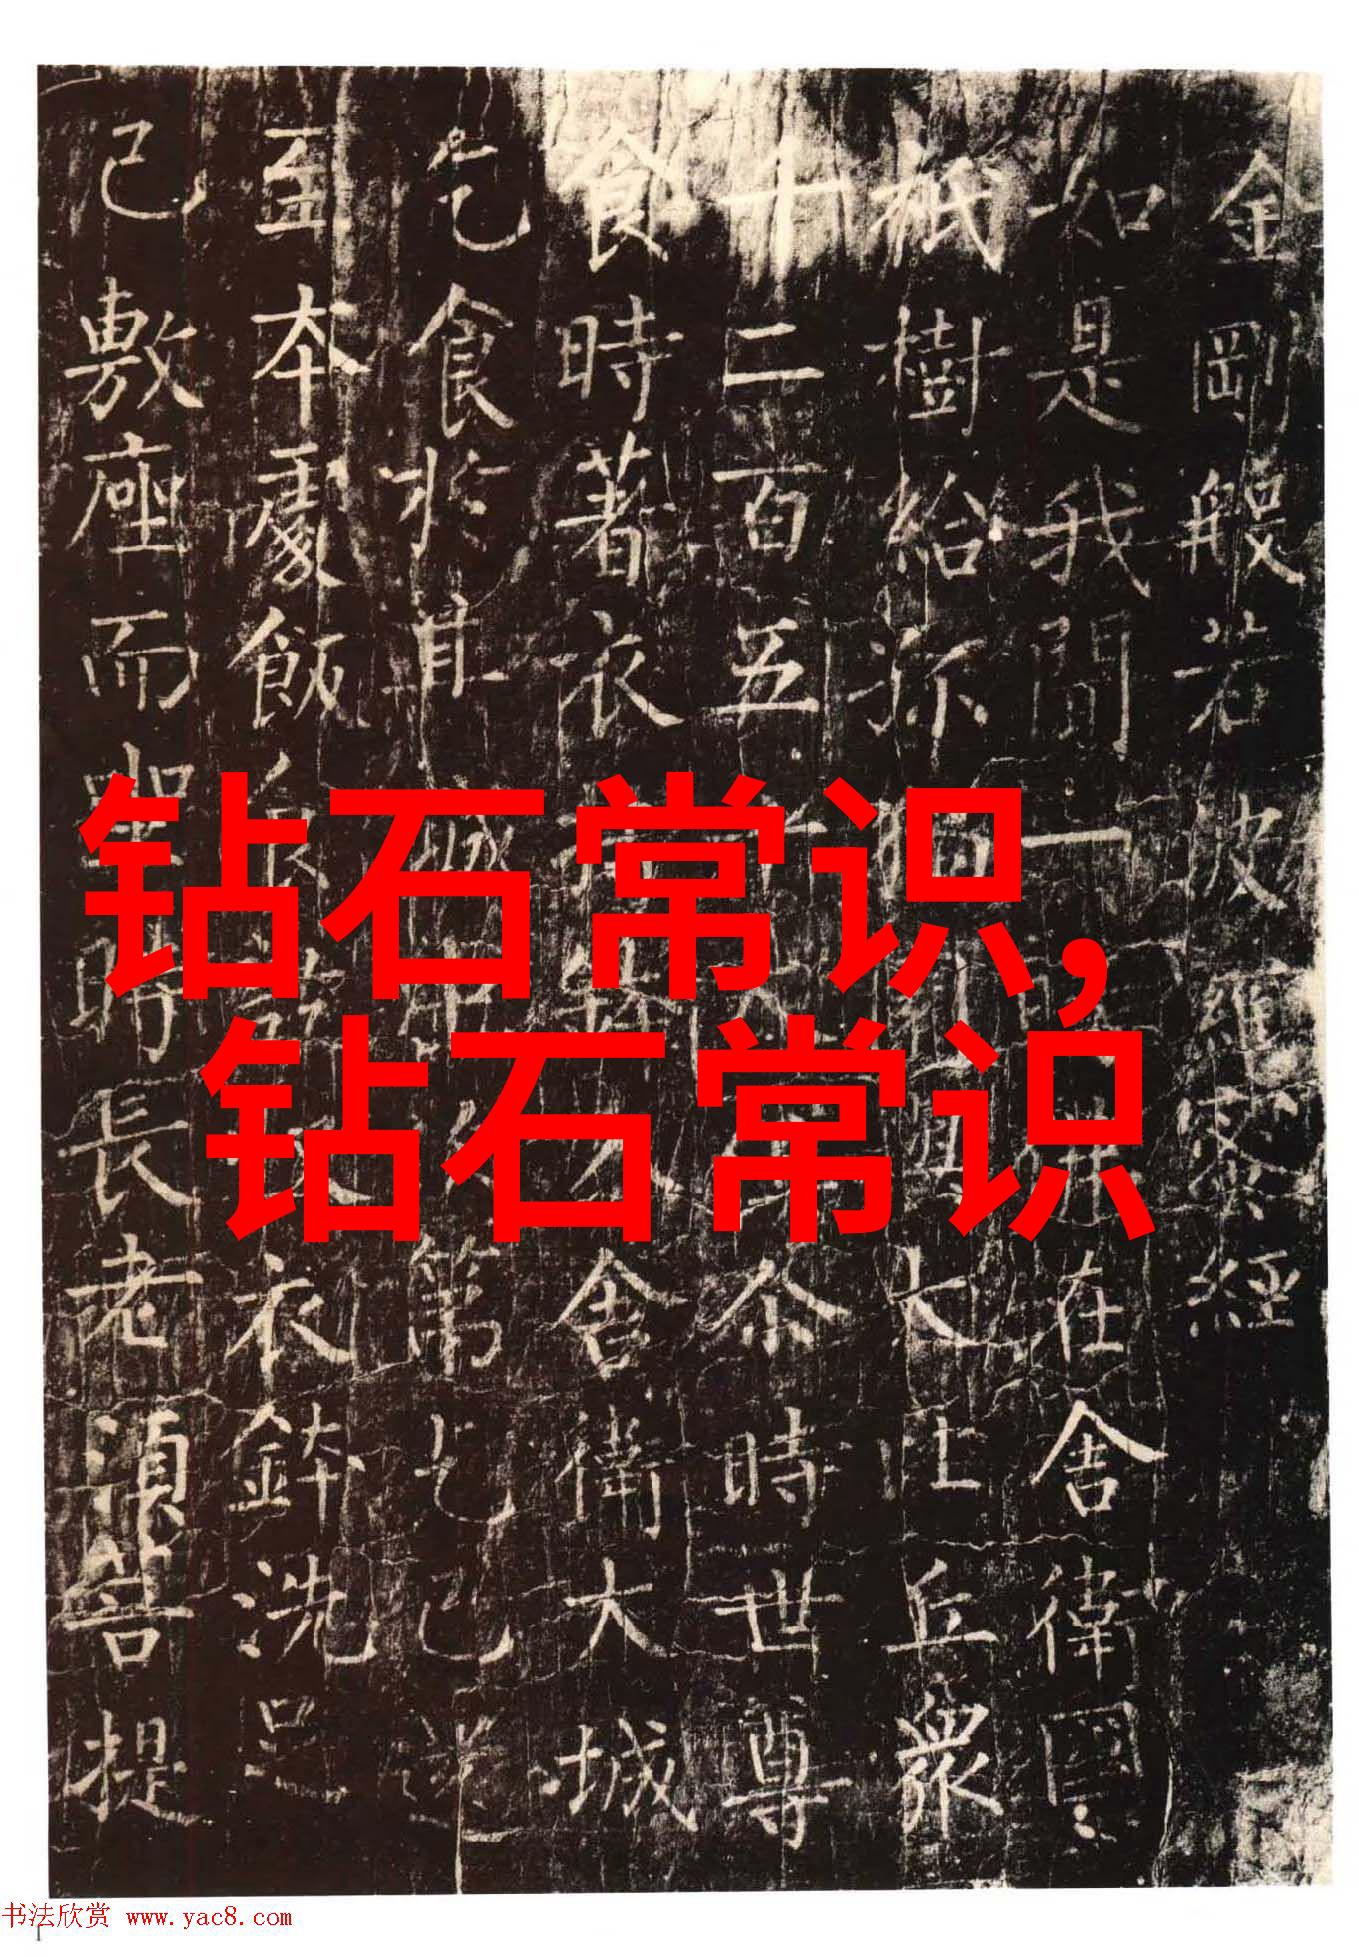 金剛般若波羅蜜經
如是我聞一在舍衛國
祇樹給孤大比丘眾
千二百五尒時世尊
食時著衣舍衛大城
乞食於其城第乞已還
至本處飯衣鉢洗足
已敷座而坐時長老湏菩提
钻石常识,
钻石常识
书法欣赏 www.yac8.com